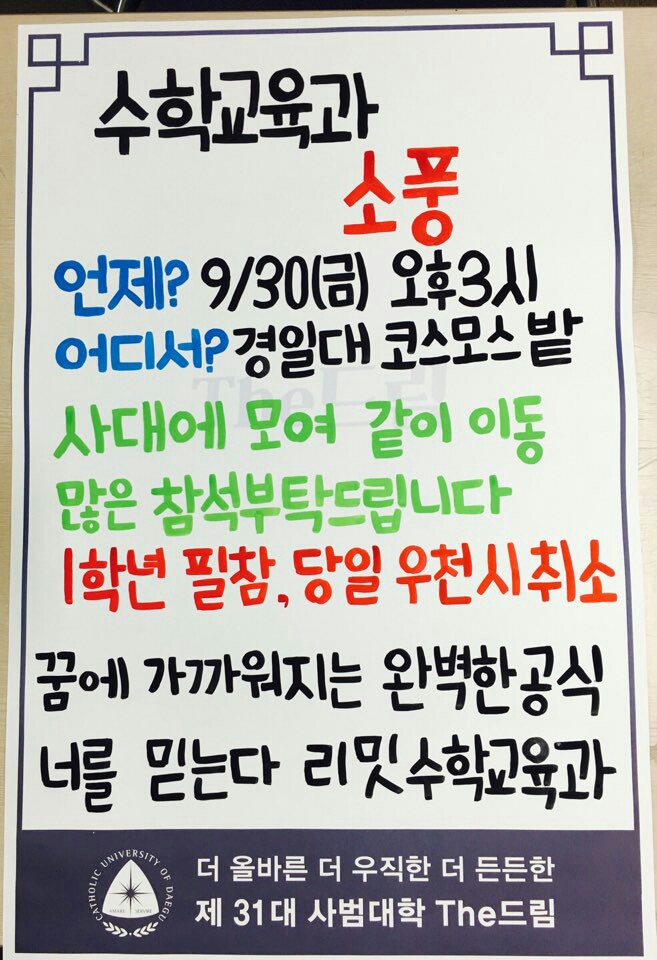 수학교육과
소풍
언제? 9/30(금) 오후3시
어디서? 경일대 코스모스밭
The드림
사대에 모여 같이 이동
많은 참석부탁드립니다
1학년 필참, 당일 우천시 취소
꿈에 가까워지는 완벽한공식
너를 믿는다 리밋수학교육과
CATHOLIC UNIVERSITY OF DAEGU
AMARE SERVIRE
더 올바른 더 우직한 더 든든한
제 31대 사범대학 The드림